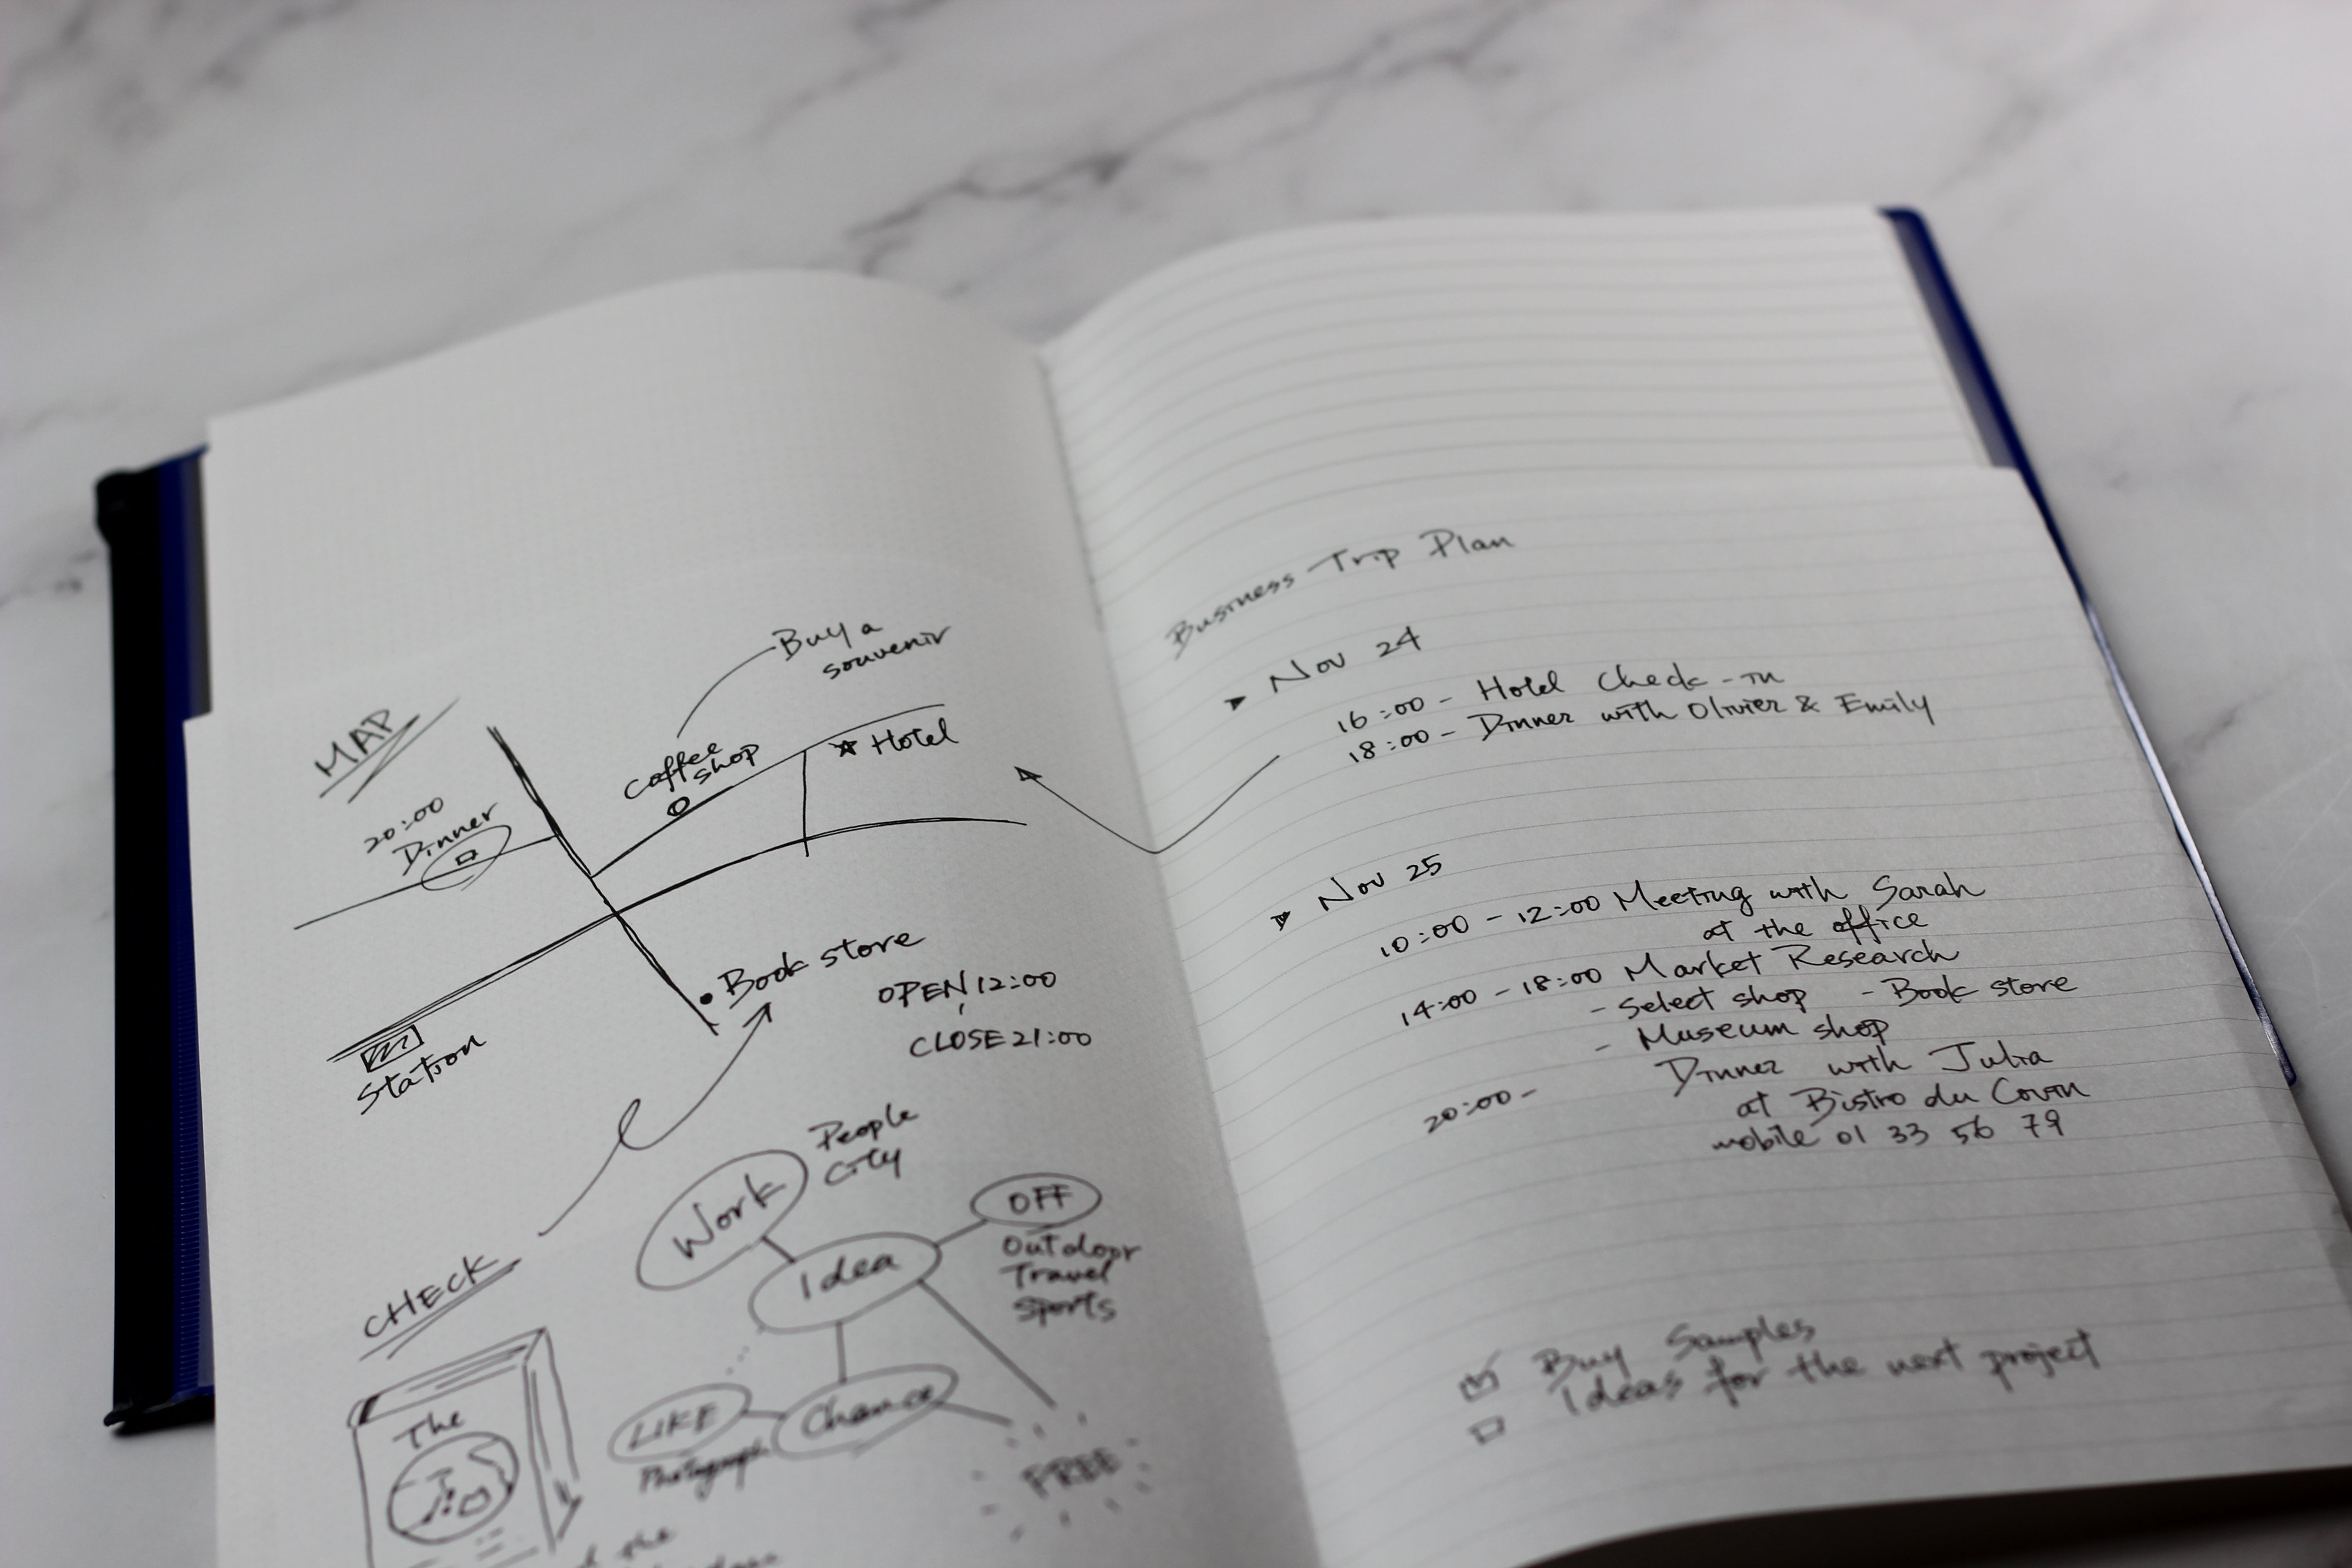 MAP
Buy a
souvenir
Coffee
shop
Hotel
20:00
Dinner
Book store
OPEN 12:00
CLOSE 21:00
Station
CHECK
People
City
Work
Idea
OFF
Outdoor
Travel
Sports
LIKE
Chance
FREE
The
the
Business Trip Plan
Nov 24
16:00 - Hotel Check-in
18:00 - Dinner with Olivier & Emily
Nov 25
10:00 - 12:00 Meeting with Sarah
at the office
14:00 - 18:00 Market Research
- Select shop - Book store
- Museum shop
20:00 - Dinner with Julia
at Bistro du Covin
mobile 01 33 56 79
Buy Samples
Ideas for the next project